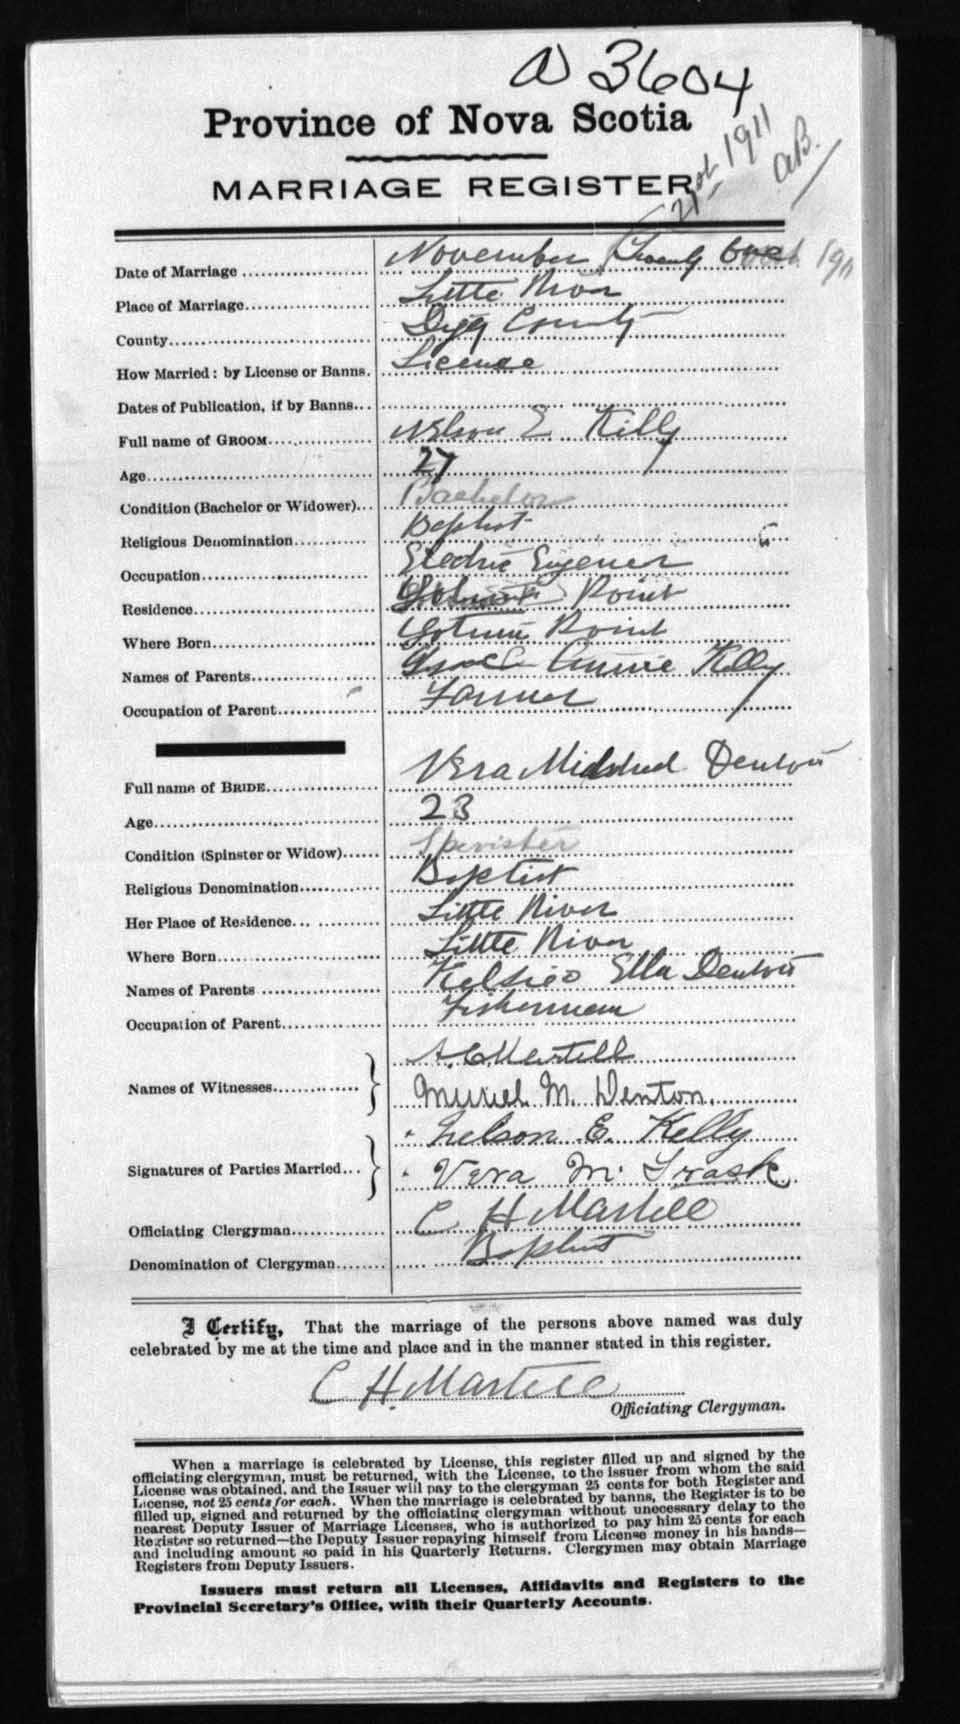 A 3604
Province of Nova Scotia
21st 1911
AB.
MARRIAGE REGISTER
Date of Marriage November Twenty 1911
Place of Marriage Little River
County Digby County
How Married: by License or Banns. License
Dates of Publication, if by Banns
Full name of GROOM Nelson E Kelly
Age 27
Condition (Bachelor or Widower) Bachelor
Religious Denomination Baptist
Occupation Electric Engener
Residence Point
Where Born Point
Names of Parents Annie Kelly
Occupation of Parent Farmer
Full name of BRIDE Vera Mildred Denton
Age 23
Condition (Spinster or Widow) Spinister
Religious Denomination Baptist
Her Place of Residence Little River
Where Born Little River
Names of Parents Ella Denton
Occupation of Parent Fisherman
A. C. Martell
Names of Witnesses
Muriel M. Denton.
Nelson E. Kelly
Signatures of Parties Married
Vera M. Trask
Officiating Clergyman C H Martell
Denomination of Clergyman Baptist
I Certify, That the marriage of the persons above named was duly
celebrated by me at the time and place and in the manner stated in this register.
C H. Martell
Officiating Clergyman.
When a marriage is celebrated by License, this register filled up and signed by the
officiating clergyman, must be returned, with the License, to the issuer from whom the said
License was obtained, and the Issuer will pay to the clergyman 25 cents for both Register and
License, not 25 cents for each. When the marriage is celebrated by banns, the Register is to be
filled up, signed and returned by the officiating clergyman without unnecessary delay to the
nearest Deputy Issuer of Marriage Licenses, who is authorized to pay him 25 cents for each
Register so returned—the Deputy Issuer repaying himself from License money in his hands—
and including amount so paid in his Quarterly Returns. Clergymen may obtain Marriage
Registers from Deputy Issuers.
Issuers must return all Licenses, Affidavits and Registers to the
Provincial Secretary's Office, with their Quarterly Accounts.